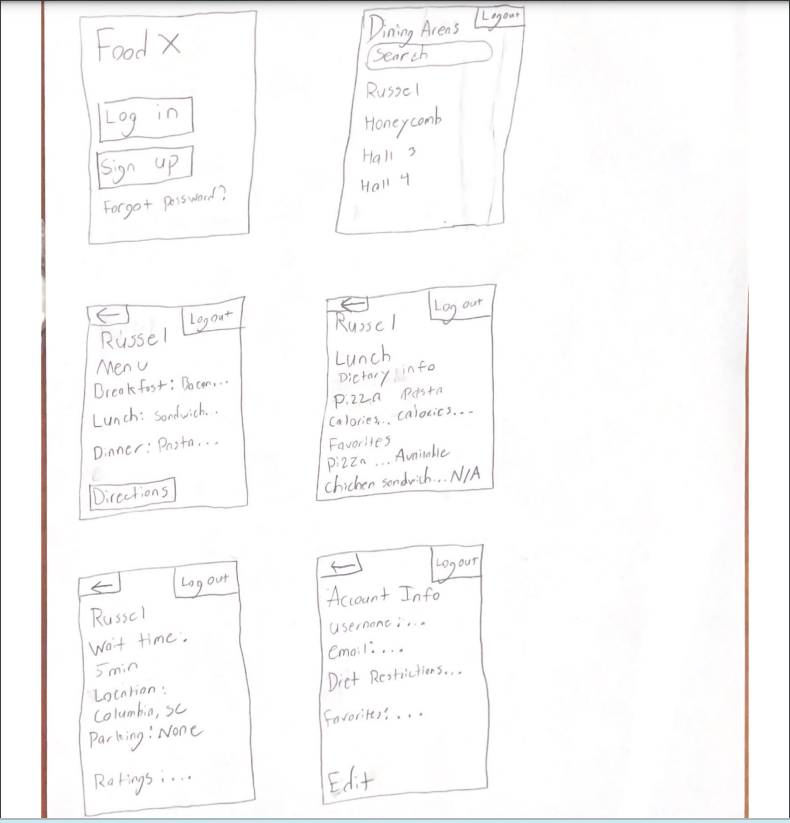 Food X
Log in
Sign up
Forgot password?
Dining Areas
Logout
Search
Russel
Honeycomb
Hall 3
Hall 4
←
Logout
Russel
Menu
Breakfast: Bacon...
Lunch: Sandwich..
Dinner: Pasta...
Directions
←
Log out
Russel
Lunch
Dietary info
Pizza Pasta
Calories... calories...
Favorites
Pizza ... Available
Chicken sandwich... N/A
←
Log out
Russel
Wait time:
5min
Location:
Columbia, SC
Parking: None
Ratings:...
←
Log out
Account Info
username:...
email:...
Diet Restrictions...
Favorites:...
Edit